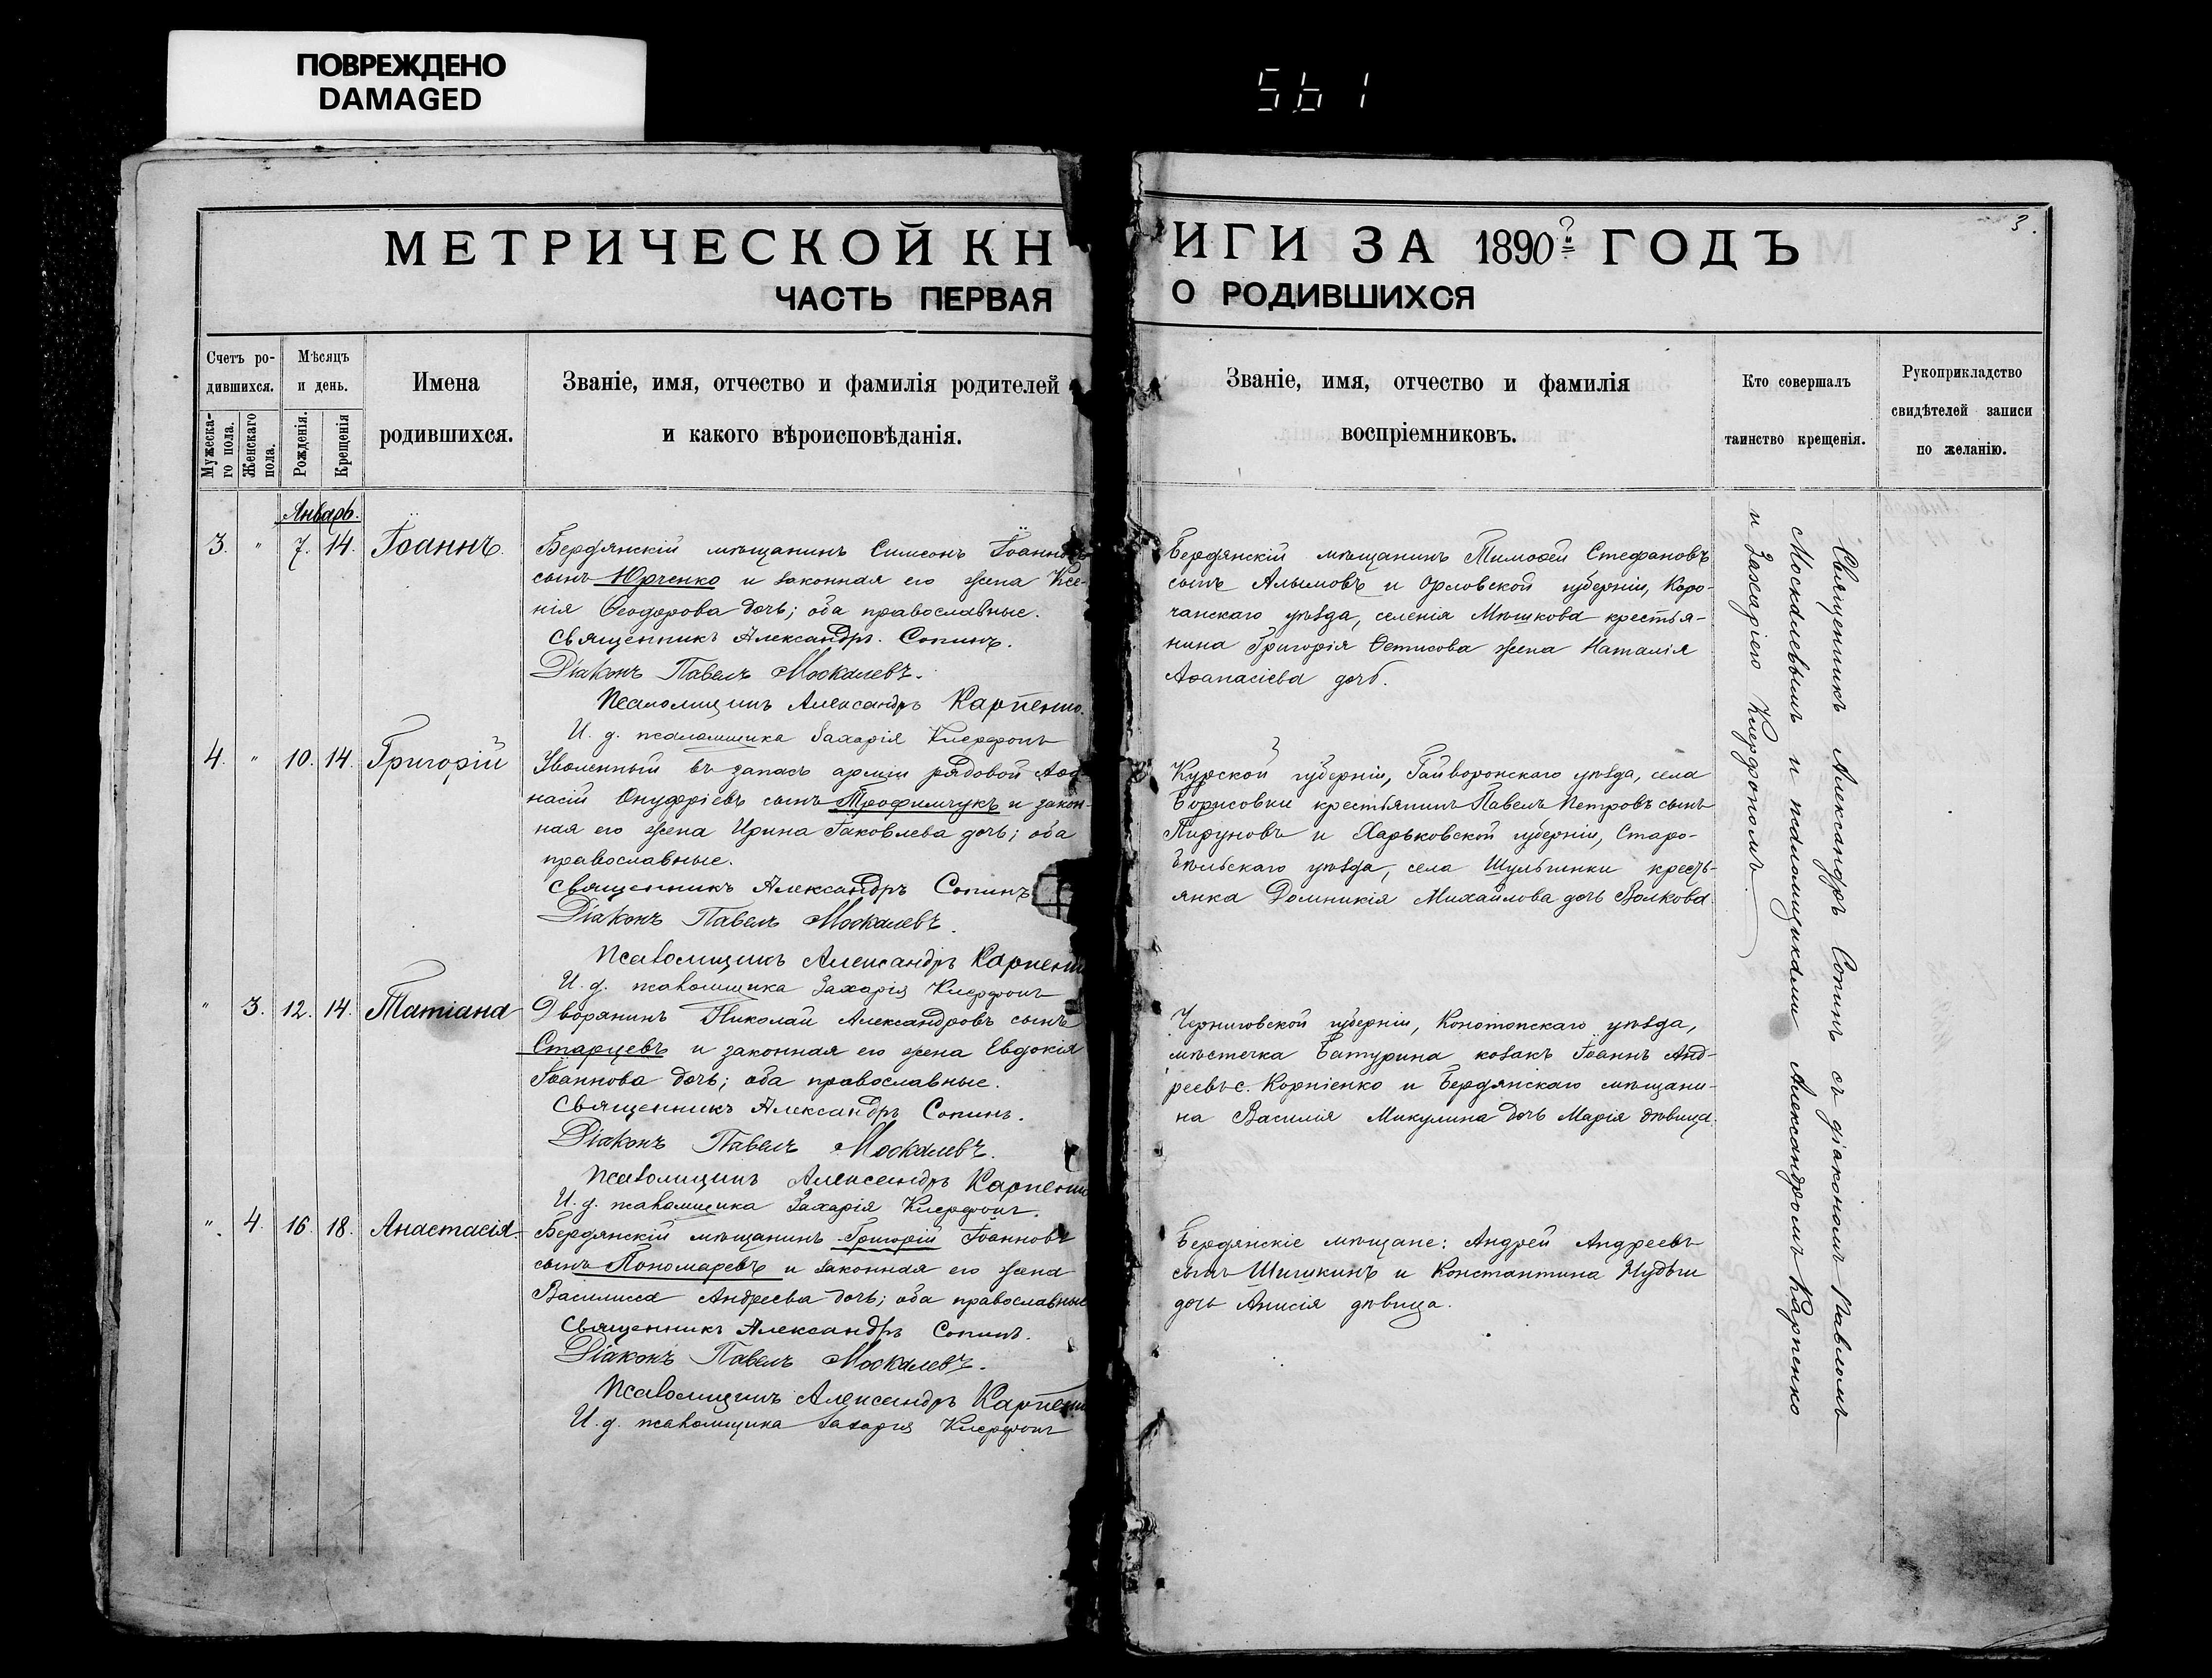 ПОВРЕЖДЕНО
DAMAGED
561
МЕТРИЧЕСКОЙ КН
ЧАСТЬ ПЕРВАЯ
Счетъ ро-
дившихся.
Мужеска-
го пола.
Женскаго
пола.
Мѣсяцъ
и день.
Рожденія.
Крещенія
Имена
родившихся.
Званіе, имя, отчество и фамилія родителей
и какого вѣроисповѣданія.
Январь.
3. " 7. 14. Іоаннъ.
Бердянскій мѣщанинъ Симеонъ Іоанновъ
сынъ Юрченко и законная его жена Ксе-
нія Ѳеодорова дочь; оба православные.
Священникъ Александръ Сопинъ.
Діаконъ Павелъ Москалевъ.
Псаломщикъ Александръ Карпенко.
И. д. псаломщика Захарія
4. " 10. 14. Григорій
Уволенный въ запасъ арміи рядовой Аѳа-
насій Онуфріевъ сынъ Трофимчукъ и закон-
ная его жена Ирина Іаковлева дочь; оба
православные.
Священникъ Александръ Сопинъ
Діаконъ Павелъ Москалевъ.
Псаломщикъ Александръ Карпенко
И. д. псаломщика Захарія
" 3. 12. 14. Татіана
Дворянинъ Николай Александровъ сынъ
Старцевъ и законная его жена Евдокія
Іоаннова дочь; оба православные.
Священникъ Александръ Сопинъ.
Діаконъ Павелъ Москалевъ.
Псаломщикъ Александръ Карпенко
И. д. псаломщика Захарія
" 4. 16. 18. Анастасія.
Бердянскій мѣщанинъ Григорій Іоанновъ
сынъ Пономаревъ и законная его жена
Василисса Андреева дочь; оба православные
Священникъ Александръ Сопинъ.
Діаконъ Павелъ Москалевъ.
Псаломщикъ Александръ Карпенко
И. д. псаломщика Захарія
3.
ИГИ ЗА 1890й ГОДЪ
О РОДИВШИХСЯ
Званіе, имя, отчество и фамилія
воспріемниковъ.
Кто совершалъ
таинство крещенія.
Рукоприкладство
свидѣтелей записи
по желанію.
Бердянскій мѣщанинъ Тимоѳей Стефановъ
сынъ Алымовъ и Орловской губерніи, Коро-
чанскаго уѣзда, селенія Мѣшкова крестья-
нина Григорія Ѳетисова жена Наталія
Аѳанасіева дочь.
Курской губерніи, Гайворонскаго уѣзда, села
Борисовки крестьянинъ Павелъ Петровъ сынъ
и Харьковской губерніи, Старо-
бѣльскаго уѣзда, села Шульгинки кресть-
янка Домникія Михайлова дочь Волкова.
Черниговской губерніи, Конотопскаго уѣзда,
мѣстечка Батурина козакъ Іоаннъ Анд-
реевъ с. Корніенко и Бердянскаго мѣщани-
на Василія Микулина дочь Марія дѣвица.
Бердянскіе мѣщане: Андрей Андреевъ
сынъ Шишкинъ и Константина Нудьги
дочь Анисія дѣвица.
Священникъ Александръ Сопинъ съ діакономъ Павломъ
Москалевымъ и псаломщиками Александромъ Карпенко
и Захаріею